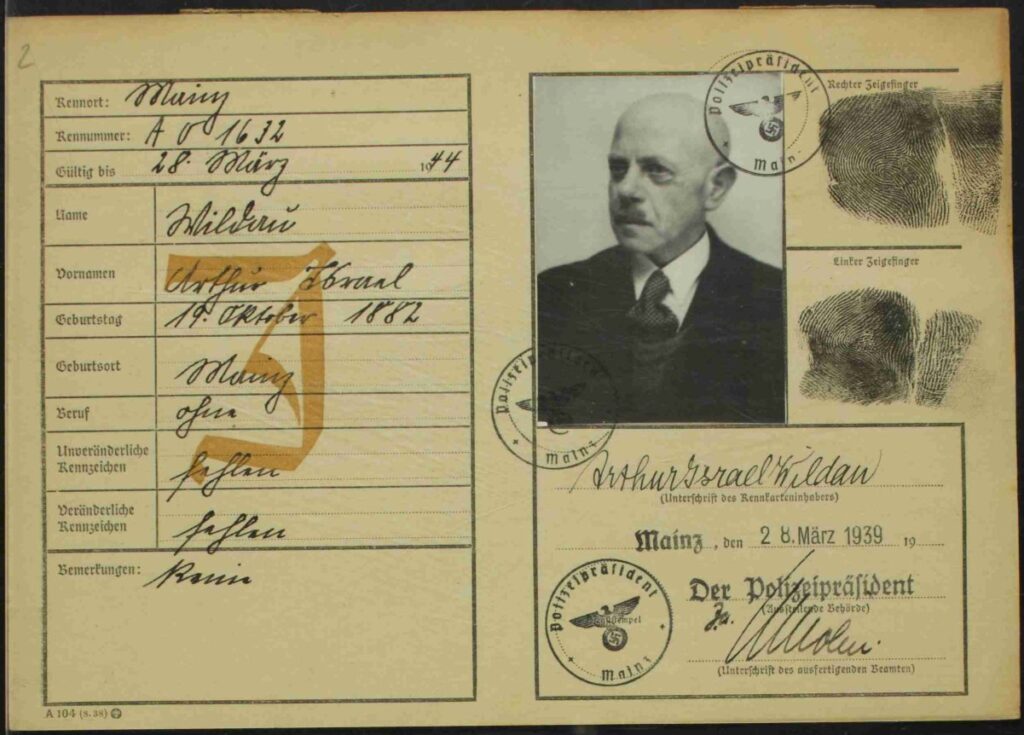 2
Kennort: Mainz
Kennummer: A 0 1632
Gültig bis 28. März 1944
Name Wildau
Vornamen Arthur Israel
Geburtstag 19. Oktober 1882
Geburtsort Mainz
Beruf ohne
Unveränderliche
Kennzeichen fehlen
Veränderliche
Kennzeichen fehlen
Bemerkungen: Keine
J
A 104 (8. 38)
Polizeipräsident
Mainz
Rechter Zeigefinger
Linker Zeigefinger
Polizeipräsident
Mainz
Arthur Israel Wildau
(Unterschrift des Kennkarteninhabers)
Mainz, den 28. März 1939 19
Polizeipräsident
Mainz
Der Polizeipräsident
(Ausstellende Behörde)
(Unterschrift des ausfertigenden Beamten)